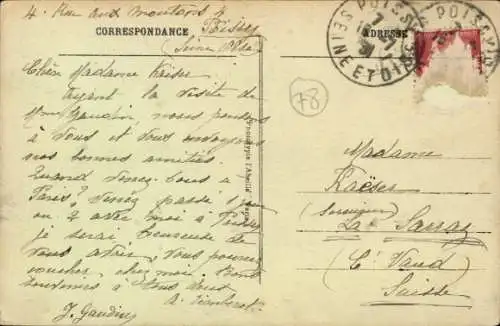 4 Rue aux Moutons 4
Poissy
(Seine Oise)
CORRESPONDANCE
ADRESSE
POISSY
SEINE ET OISE
78
Chère Madame Kaiser
Ayant la visite de
Mme Gaudin, nous pensons
à Vous et Vous envoyons
nos bonnes amitiés.
Quand Venez-Vous à
Paris? Venez passé 1 jour
ou 2 avec moi à Poissy
je serai heureuse de
Vous avoir, Vous pouvez
coucher chez moi. Bons
souvenirs à tous deux
A bientôt
J. Gaudin
Phototypie l'Abeille, Paris
Madame
Kaëser
La Sarraz
(Ct Vaud)
Suisse